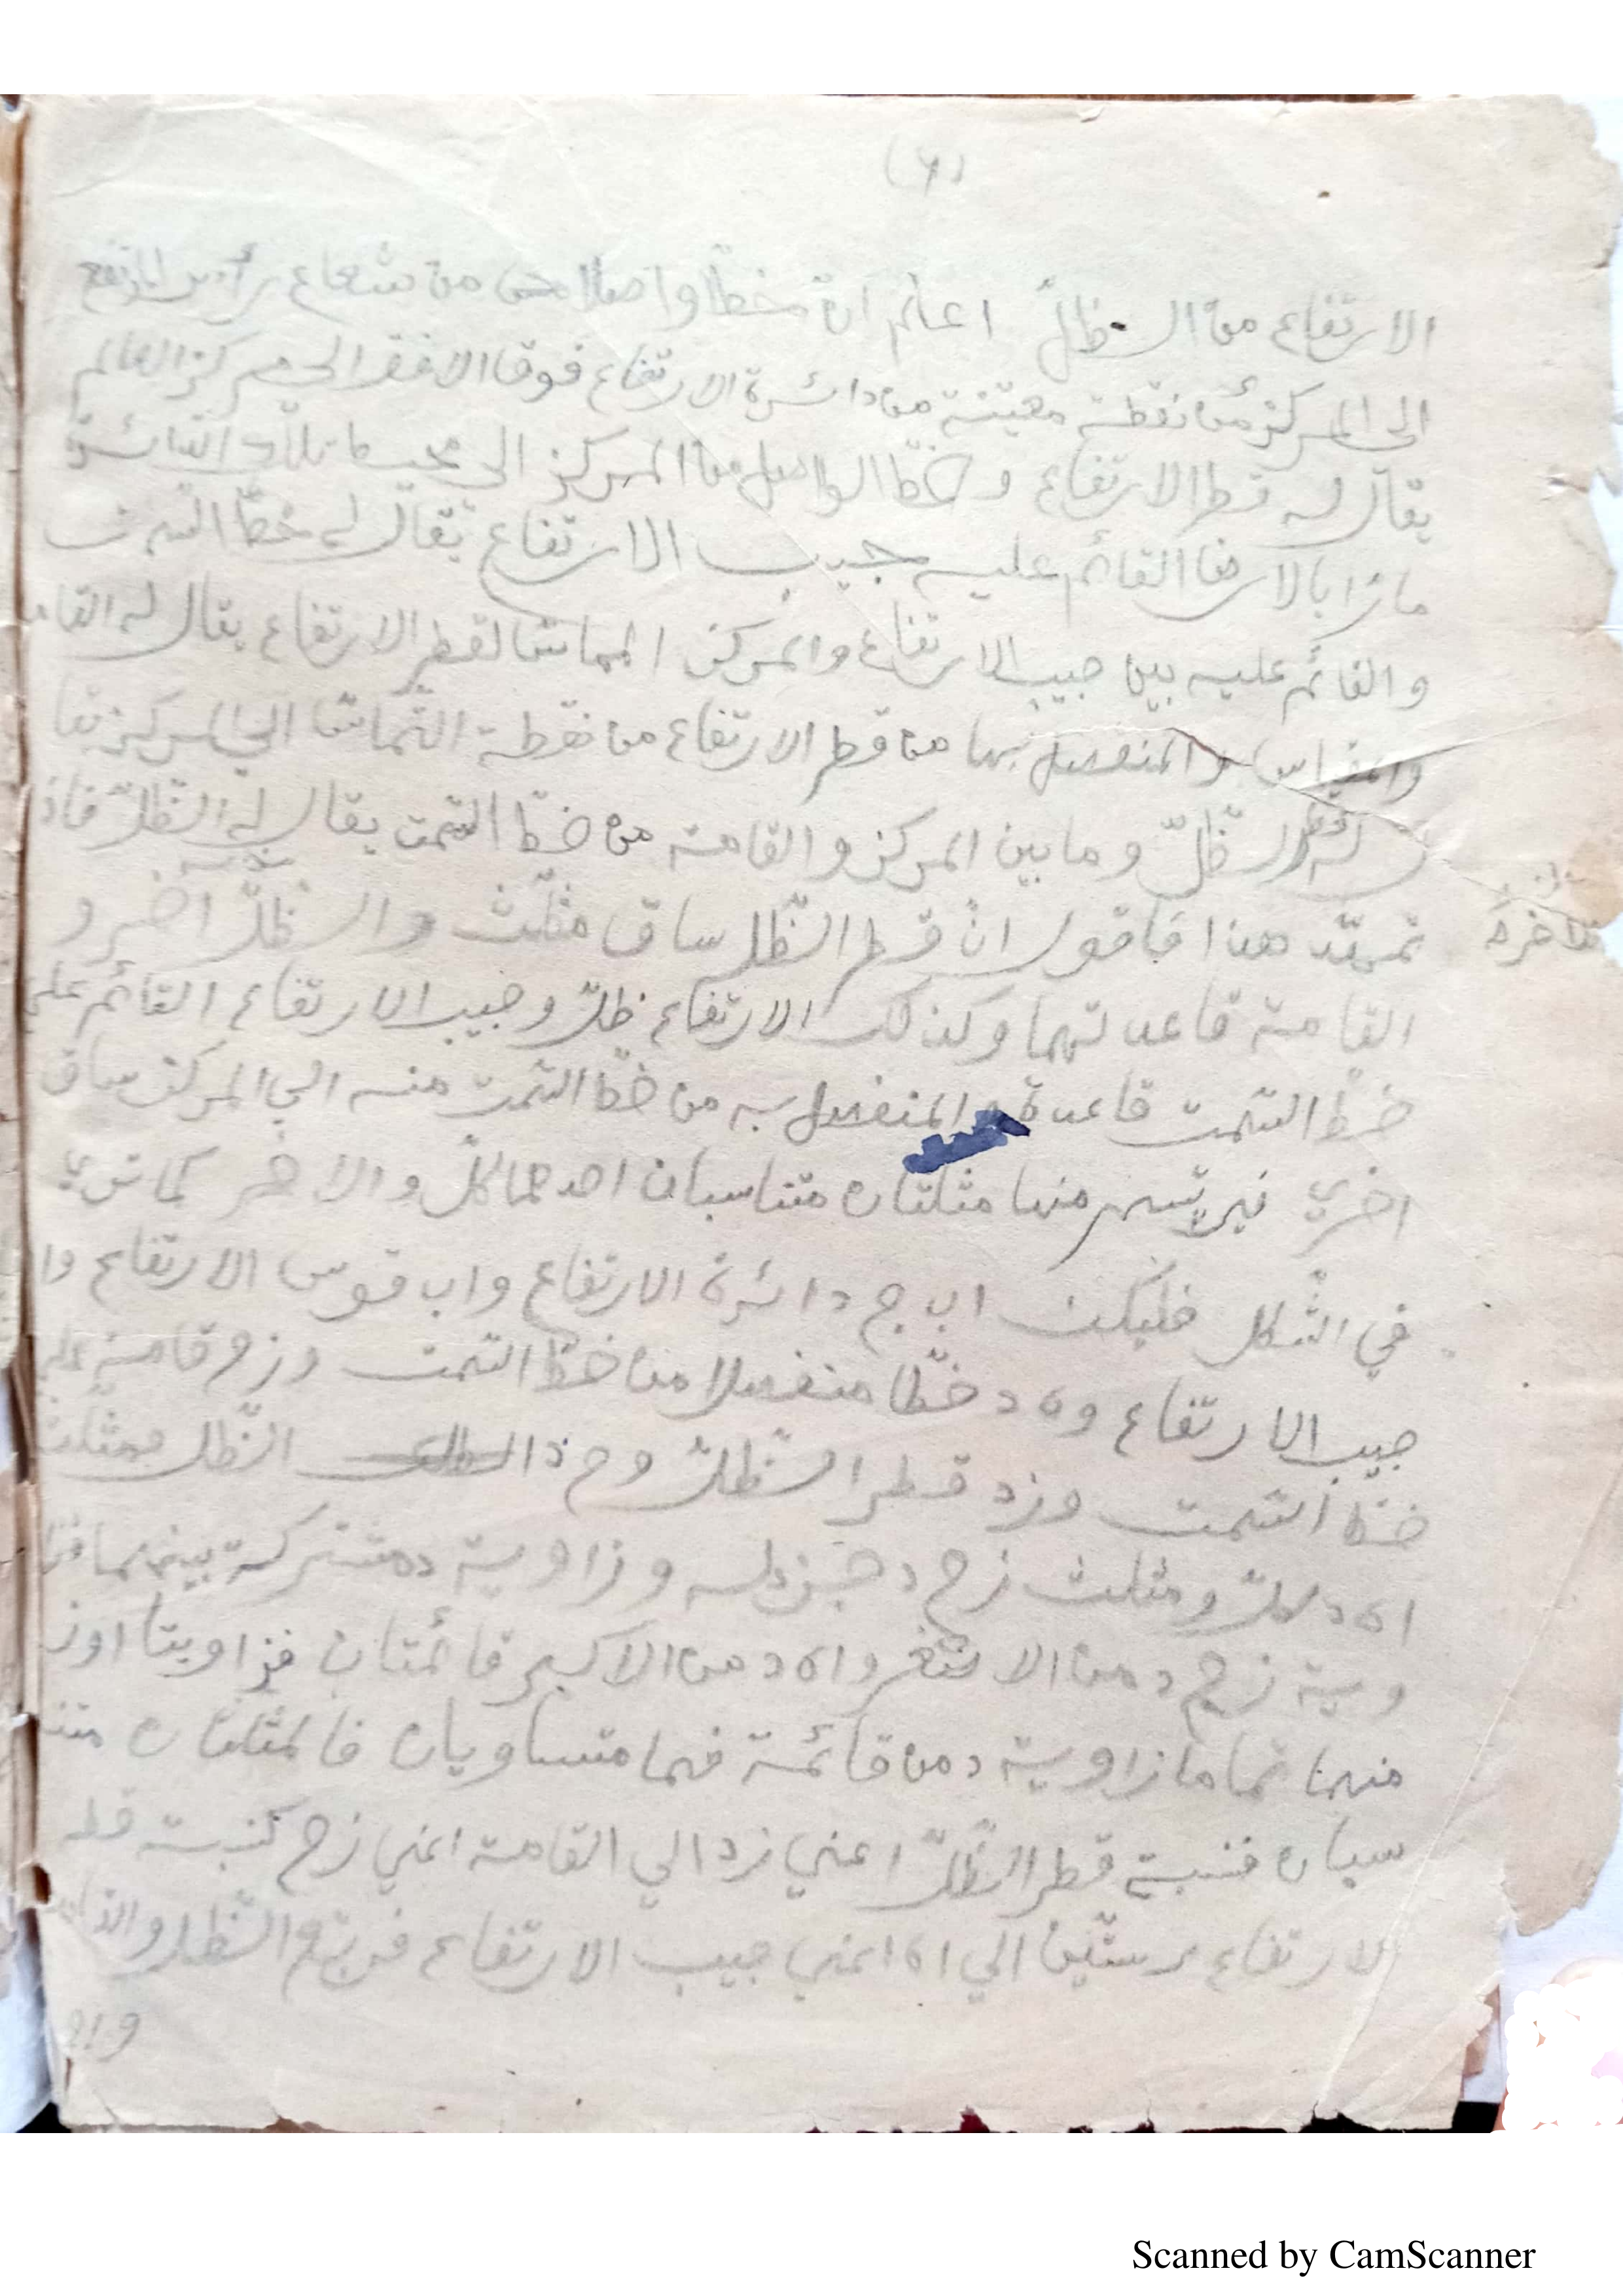 (٦)
الارتفاع من الظلّ اعلم انّ خطّا واصلا من شعاع رأس المرتفع
الى المركز من نقطة معيّنة من دائرة الارتفاع فوق الافق الى مركز العالم
يقال له قطر الارتفاع و خطّا الواصل من المركز الى محيط تلك الدّائرة
مارّا بالارض القائم عليه جيب الارتفاع يقال له خطّ السّمت
والقائم عليه بين جيب الارتفاع والمركز المماسّ لقطر الارتفاع يقال له القا
والمقياس والمنفصل بها من قطر الارتفاع من نقطة التّماسّ الى المركز يقا
ل له قطر الظلّ وما بين المركز والقامة من خطّ السّمت يقال له الظّلّ فاذ
تمهّد هذا فاقول انّ قطر الظّل ساق مثلّث والظّلّ اخر و
القامة قاعدتهما وكذلك الارتفاع ظلّ وجيب الارتفاع القائم على
خطّ السّمت قاعدة والمنفصل به من خطّ السّمت منه الى المركز ساق
اخرى فيرتسم منها مثلثان متناسبان احدهما كلّ والاخر كما ترى
في الشّكل فليكن اب ج دائرة الارتفاع واب قوس الارتفاع وا
جيب الارتفاع وه د خطّا منفصلا من خطّ السّمت وزح قامة على
خطّ السّمت وزد قطر الظّلّ وح د الظّل فمثلث
اه د كلّ ومثلث زح د جزء له وزاوية د مشتركة بينهما فزا
وية زح د من الاصغر واه د من الاكبر قائمتان فزاويتا اوز
منهما تماما زاوية د من قائمة فهما متساويان فالمثلثان متنا
سبان فنسبة قطر الظّلّ اعني زد الى القامة اعني زح كنسبة قطر
الارتفاع ستّين الى اه اعني جيب الارتفاع فربّع الظّل والقا